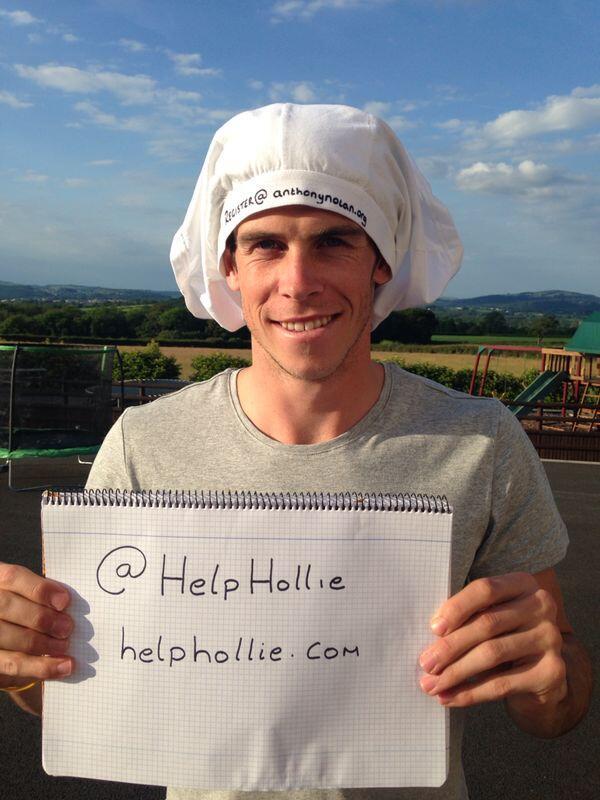 REGISTER@ anthonynolan.org
@HelpHollie
helphollie.com